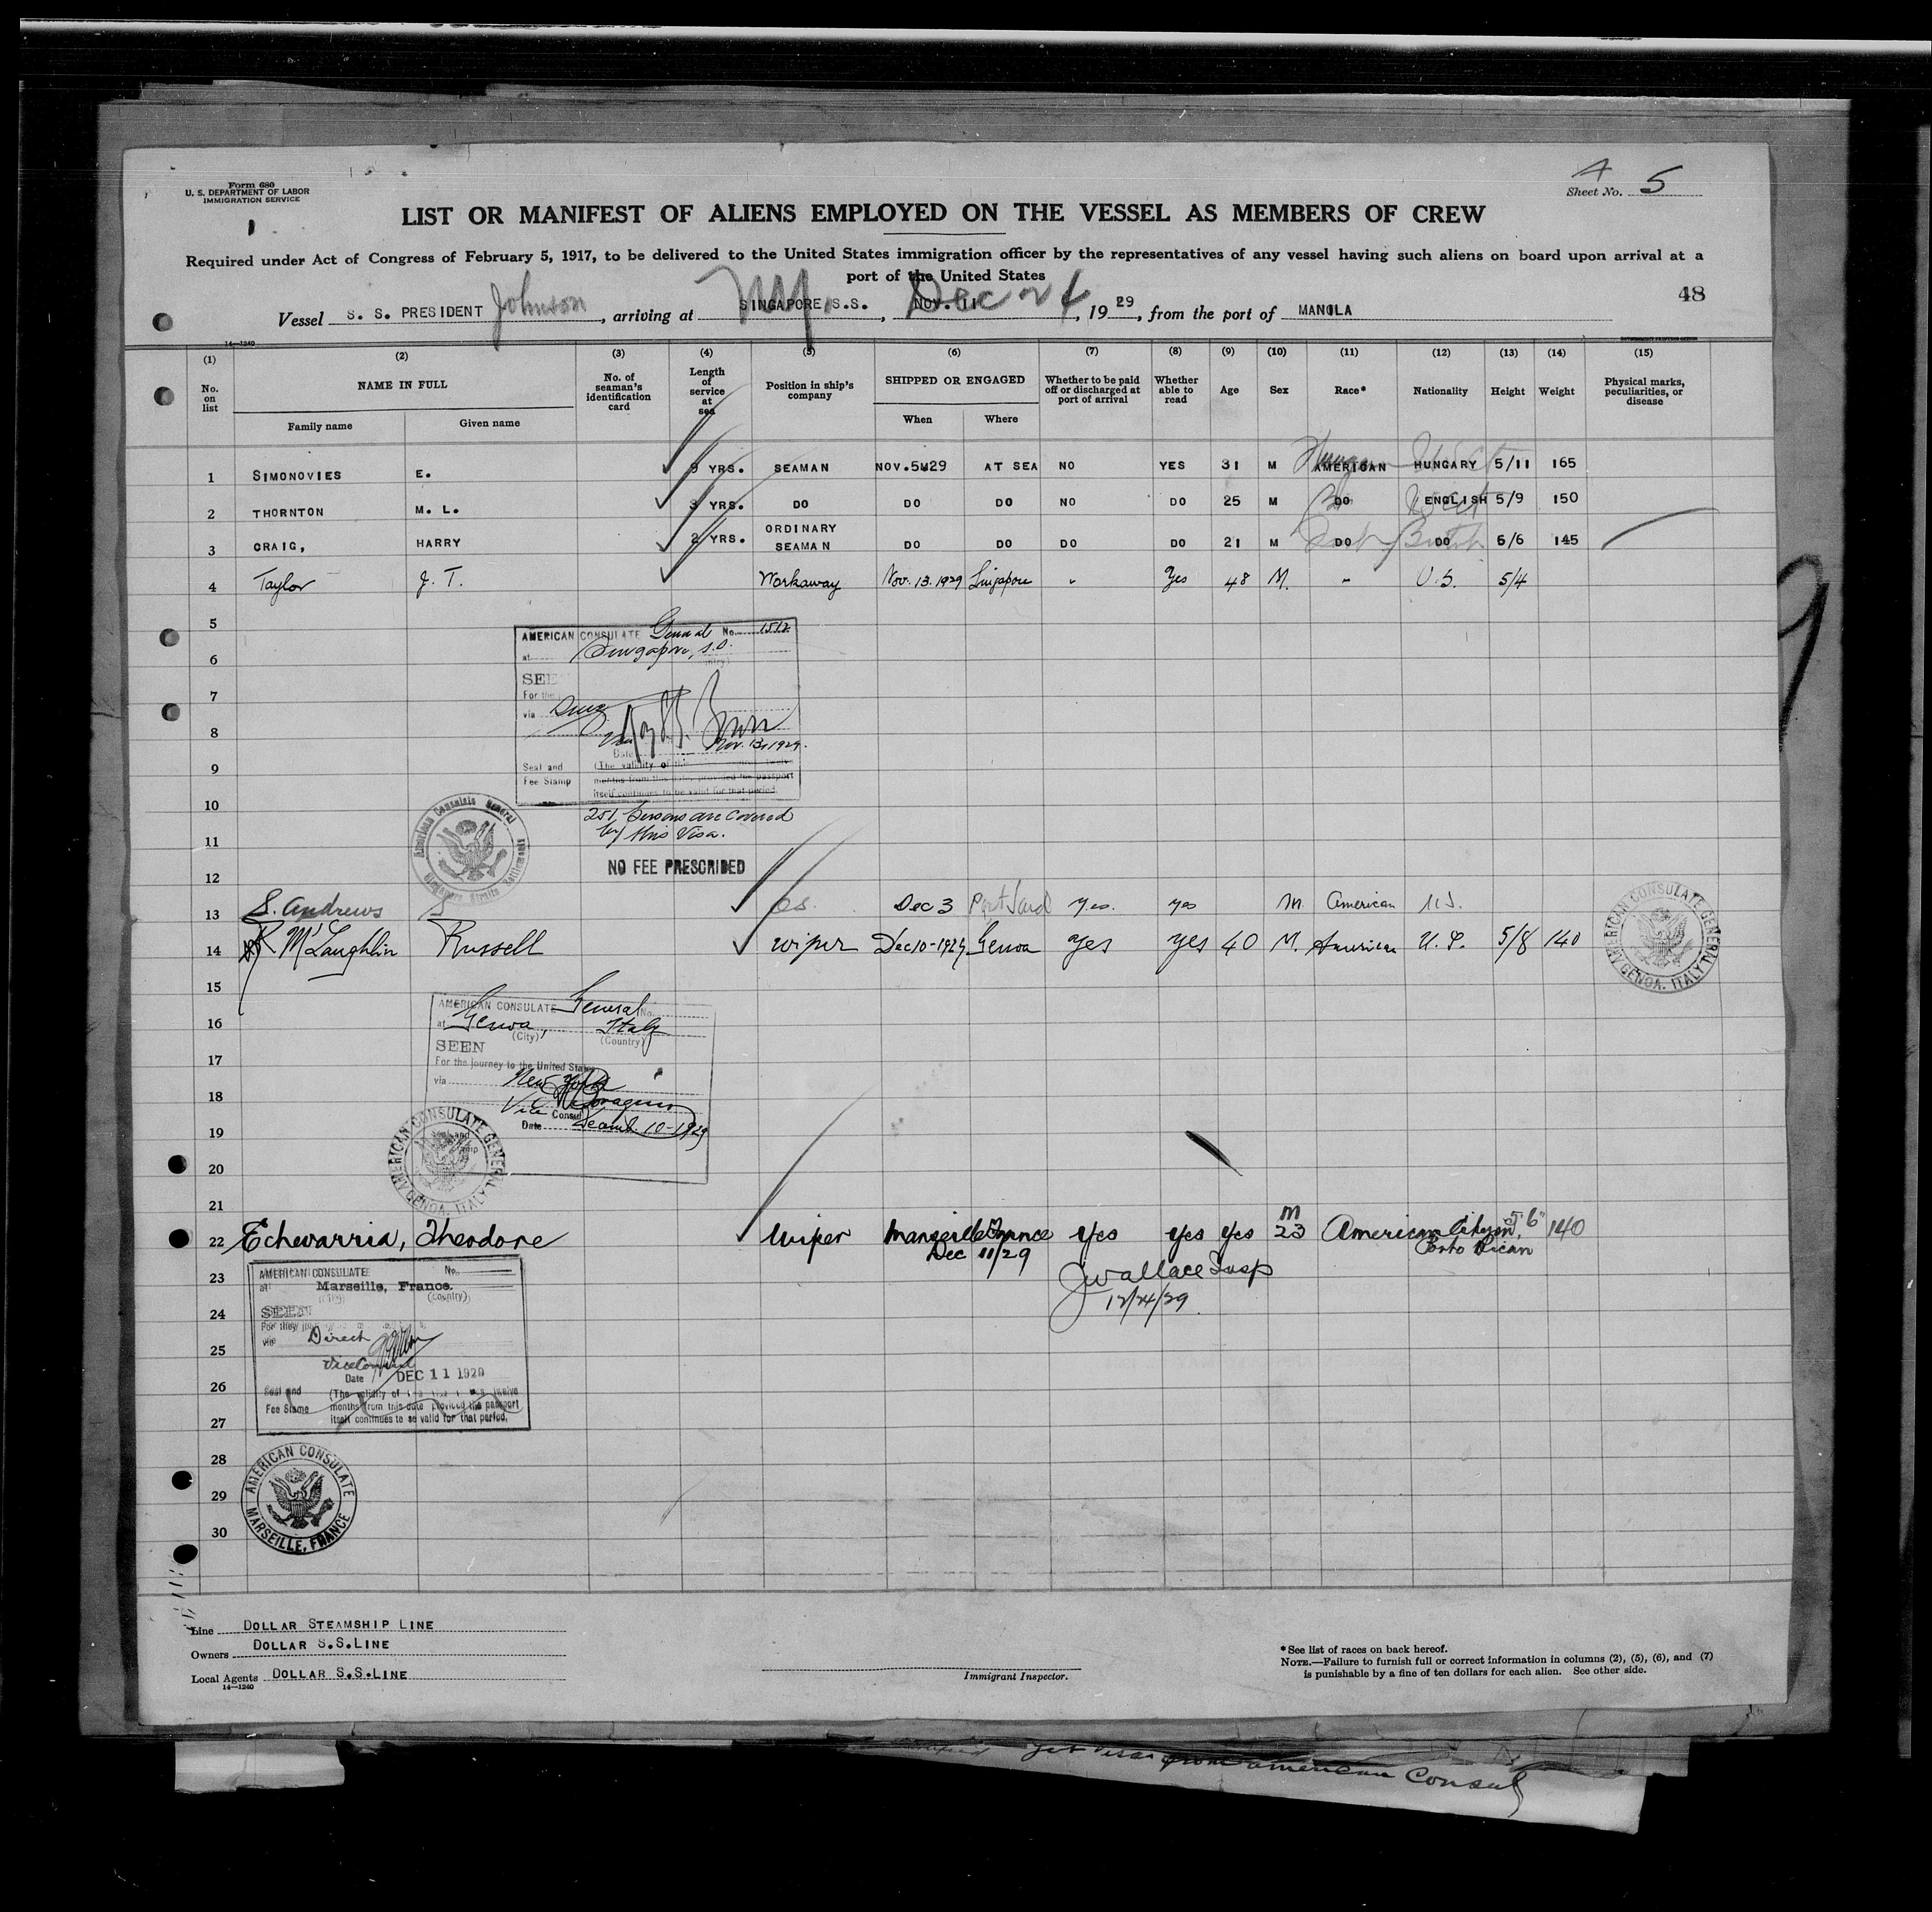 Form 680
U. S. DEPARTMENT OF LABOR
IMMIGRATION SERVICE
Sheet No. 5
LIST OR MANIFEST OF ALIENS EMPLOYED ON THE VESSEL AS MEMBERS OF CREW
Required under Act of Congress of February 5, 1917, to be delivered to the United States immigration officer by the representatives of any vessel having such aliens on board upon arrival at a
port of the United States
48
Vessel S. S. PRESIDENT Johnson, arriving at SINGAPORE, S.S. NY, NOV. 11 Dec 24, 1929, from the port of MANILA
14—1240
(1) (2) (3) (4) (5) (6) (7) (8) (9) (10) (11) (12) (13) (14) (15)
No. on list NAME IN FULL No. of seaman's identification card Length of service at sea Position in ship's company SHIPPED OR ENGAGED Whether to be paid off or discharged at port of arrival Whether able to read Age Sex Race* Nationality Height Weight Physical marks, peculiarities, or disease
Family name Given name When Where
1 SIMONOVIES E. YRS. SEAMAN NOV.5 29 AT SEA NO YES 31 M AMERICAN HUNGARY 5/11 165
2 THORNTON M. L. 3 YRS. DO DO DO NO DO 25 M DO ENGLISH 5/9 150
3 CRAIG, HARRY 2 YRS. ORDINARY SEAMAN DO DO DO DO 21 M DO DO 5/6 145
4 Taylor J. T. Workaway Nov. 13. 1929 Singapore " Yes 48 M. " U.S. 5/4
5
AMERICAN CONSULATE General No. 1512
6
at Singapore, S.S.
SEE
7
For the
via
8
Nov. 13, 1929.
Date
9
Seal and Fee Stamp (The validity of this twelve months from this date provided the passport itself continues to be valid for that period.
10
251 persons are covered
11
by this Visa.
American Consulate General Singapore Straits Settlements
NO FEE PRESCRIBED
12
13 S. Andrews S Dec 3 Port Said Yes. yes M. American U.S.
14 R. McLaughlin Russell wiper Dec 10-1929 Genoa yes yes 40 M. American U.S. 5/8 140
AMERICAN CONSULATE GENERAL GENOA. ITALY
15
AMERICAN CONSULATE General No.
16
at Genoa, Italy
(City) (Country)
SEEN
17
For the journey to the United States
via New York
18
Vice Consul
Date 10-1929
19
AMERICAN CONSULATE GENERAL GENOA. ITALY
20
21
22 Echevarria, Theodore Wiper Marseille France Dec 11/29 Yes Yes Yes M 23 American Citizen, Porto Rican 5' 6" 140
J Wallace Insp
12/24/29
23
AMERICAN CONSULATE No.
at Marseille, France.
(City) (Country)
24
SEEN
25
via Direct
Vice Consul
26
Date DEC 11 1929
Seal and Fee Stamp (The validity of twelve months from this date provided the passport itself continues to be valid for that period.
27
28
AMERICAN CONSULATE MARSEILLE, FRANCE
29
30
Line DOLLAR STEAMSHIP LINE
Owners DOLLAR S.S.LINE
Local Agents DOLLAR S.S.LINE
14—1240
Immigrant Inspector.
*See list of races on back hereof.
NOTE.—Failure to furnish full or correct information in columns (2), (5), (6), and (7)
is punishable by a fine of ten dollars for each alien. See other side.
from american Consul